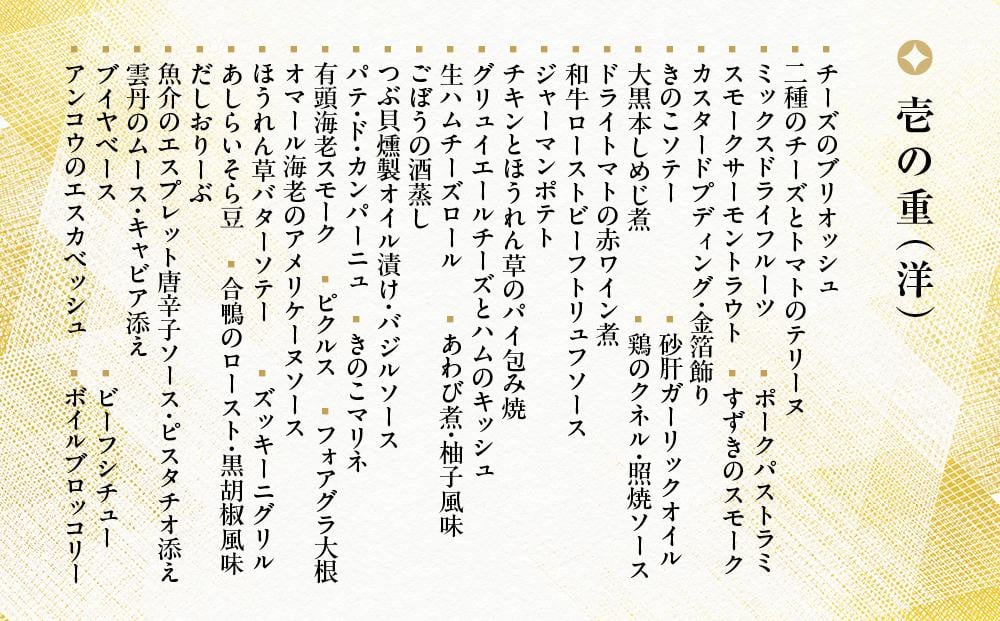 壱の重(洋)
チーズのブリオッシュ
二種のチーズとトマトのテリーヌ
ミックスドライフルーツ ▪ポークパストラミ
スモークサーモントラウト ▪すずきのスモーク
カスタードプディング・金箔飾り
きのこソテー ▪砂肝ガーリックオイル
大黒本しめじ煮 ▪鶏のクネル・照焼ソース
ドライトマトの赤ワイン煮
和牛ローストビーフトリュフソース
ジャーマンポテト
チキンとほうれん草のパイ包み焼
グリュイエールチーズとハムのキッシュ
生ハムチーズロール ▪あわび煮・柚子風味
ごぼうの酒蒸し
つぶ貝燻製オイル漬け・バジルソース
パテ・ド・カンパーニュ ▪きのこマリネ
有頭海老スモーク ▪ピクルス ▪フォアグラ大根
オマール海老のアメリケーヌソース
ほうれん草バターソテー ▪ズッキーニグリル
あしらいそら豆 ▪合鴨のロースト・黒胡椒風味
だしおりーぶ
魚介のエスプレット唐辛子ソース・ピスタチオ添え
雲丹のムース・キャビア添え
ブイヤベース ▪ビーフシチュー
アンコウのエスカベッシュ ▪ボイルブロッコリー